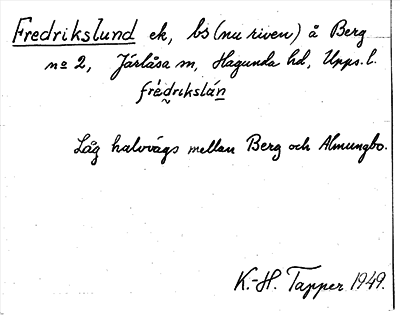 Fredrikslund ek, bs (nu riven) å Berg
nº 2, Järlåsa sn, Hagunda hd, Upps. l.
frédrikslán
Låg halvvägs mellan Berg och Almungbo.
K.-H. Tapper 1949.